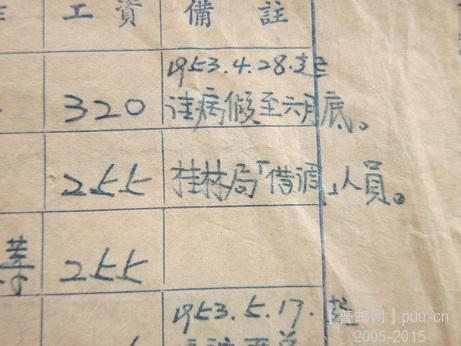 工資 備註
1953.4.28.起
320 請病假至六月底。
255 桂林局「借調」人員。
255
1953.5.17.起
普邮网】puu cn
2005-2015